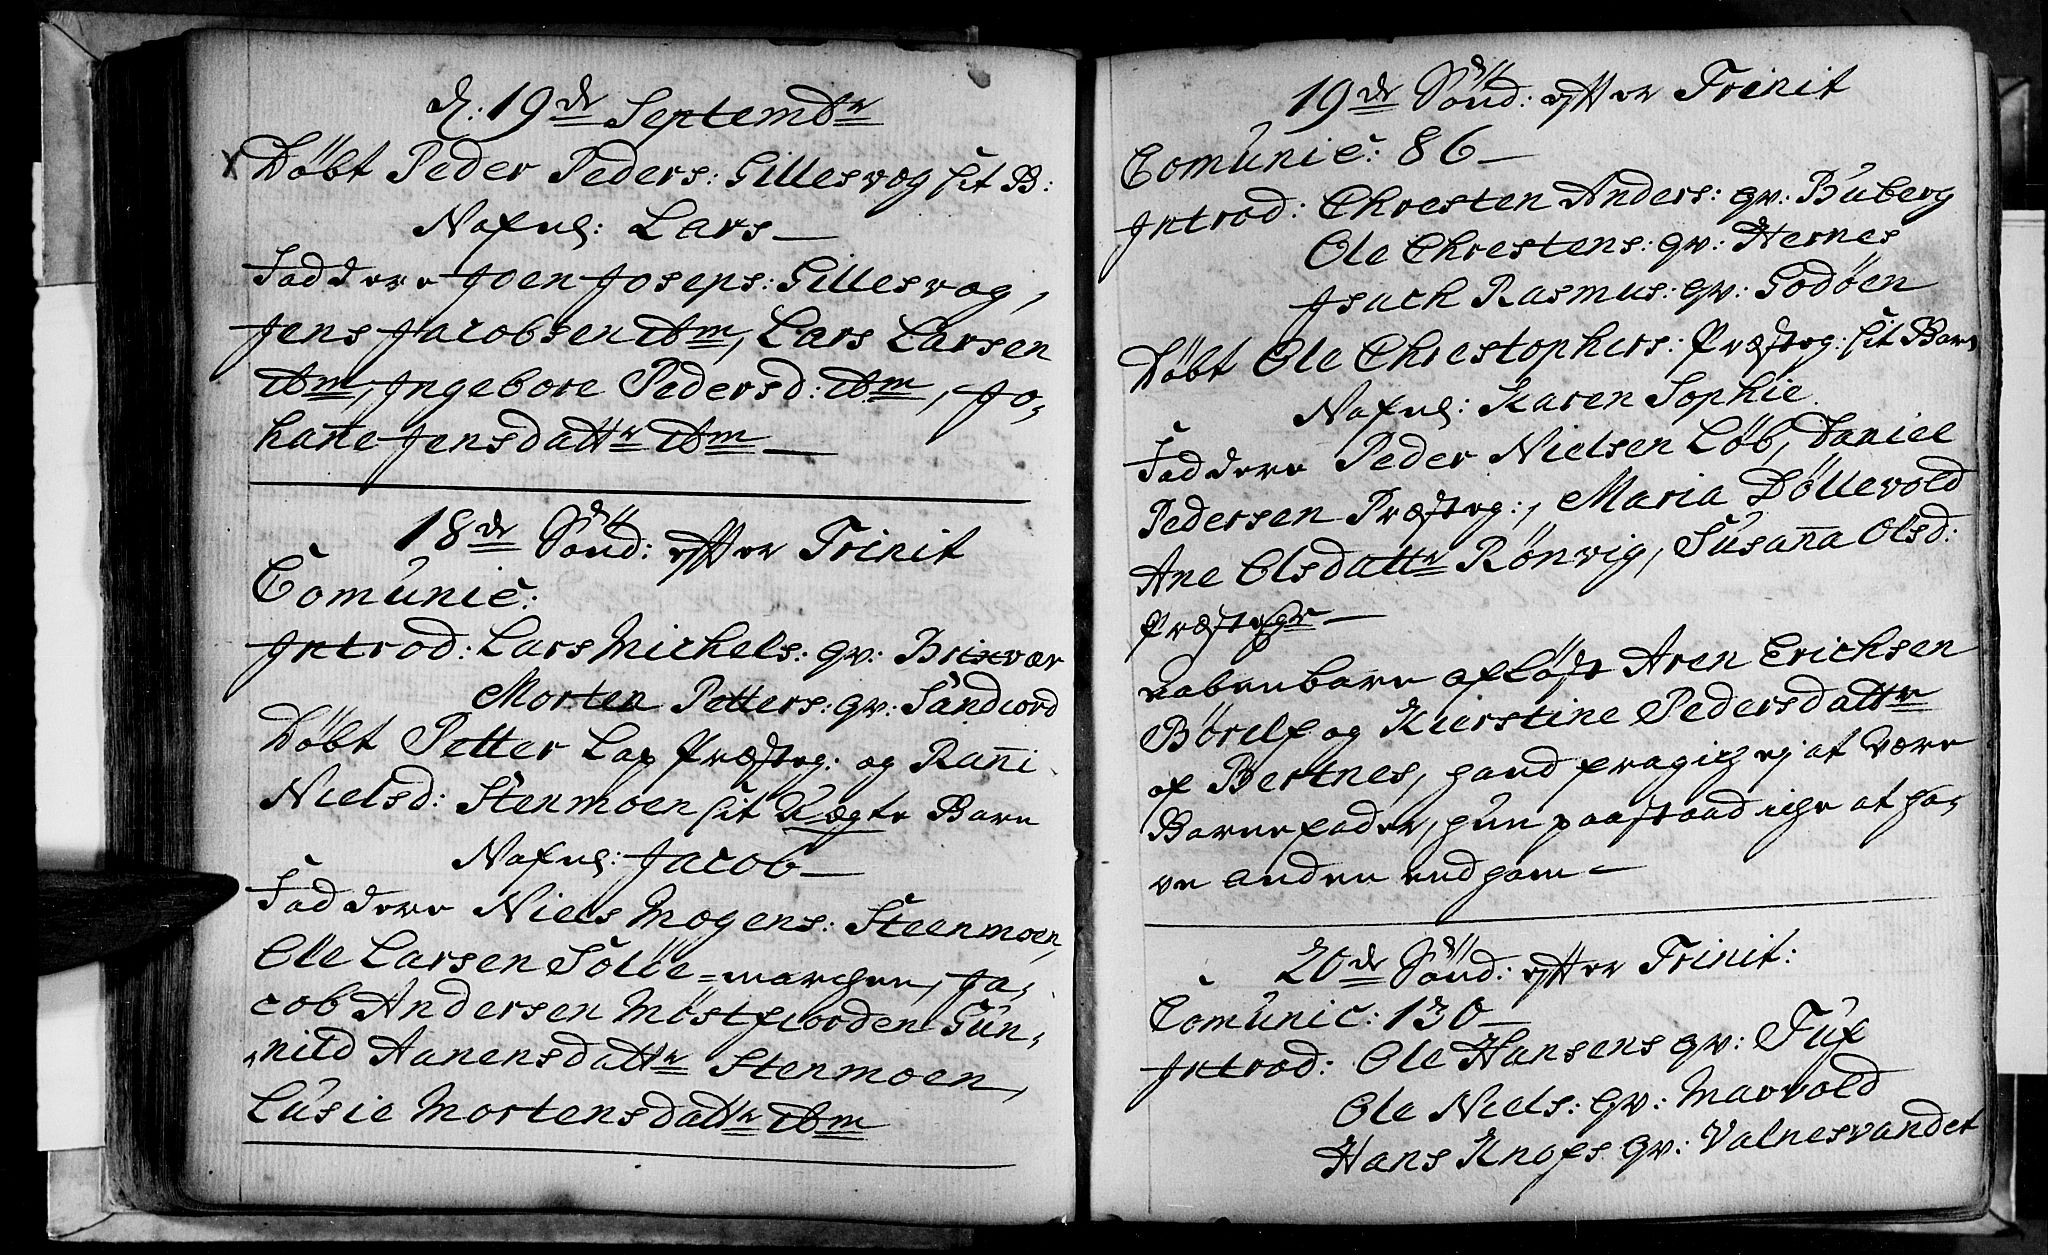 d: 19de Septembr
x Döbt Peder Peders: Gillesvog sit B:
Nafnl: Lars
Faddere Joen Joseps: Gillesvog,
Jens Jacobsen ibm, Lars Larsen
ibm, Ingebore Pedersd: ibm, Jo-
hañe Jensdattr ibm
18de Sönd: efter Trinit
Comunic:
Introd: Lars Michels: qv: Brixvær
Morten Petters: qv: Sandiord
Döbt Petter Lap Præsteg: og Rañi
Nielsd: Stenmoen sit Uægte Barn
Nafnl: Jacob
Faddere Niels Mogens: Steenmoen,
Ole Larsen Sölle=marchen, Ja-
cob Andersen Möstfiorden Gun-
nild Aanensdattr Stenmoen,
Lusie Mortensdattr ibm
19de Sönd: efter Trinit
Comunic: 86
Introd: Chresten Anders: qv: Buberg
Ole Chrestens: qv: Hernes
Isach Rasmus: qv: Godöen
Döbt Ole Chrestophers: Præsteg: sit Barn
Nafnl: Karen Sophie
Faddere Peder Nielsen Löb, Daniel
Pedersen Præsteg:, Maria Döllevold
Ane Olsdattr Rönvig, Susaña Olsd:
Præstegr
aabenbare aflöst Aren Erichsen
Börelf og Kierstine Pedersdattr
af Bertnes, hand fragich ej at være
Barnefader, hun paastaad iche at ha-
ve anden end ham
20de Sönd: efter Trinit:
Comunic: 130
Introd: Ole Hansens qv: Tuf
Ole Niels: qv: Marvold
Hans Knofs qv: Valnesvandet